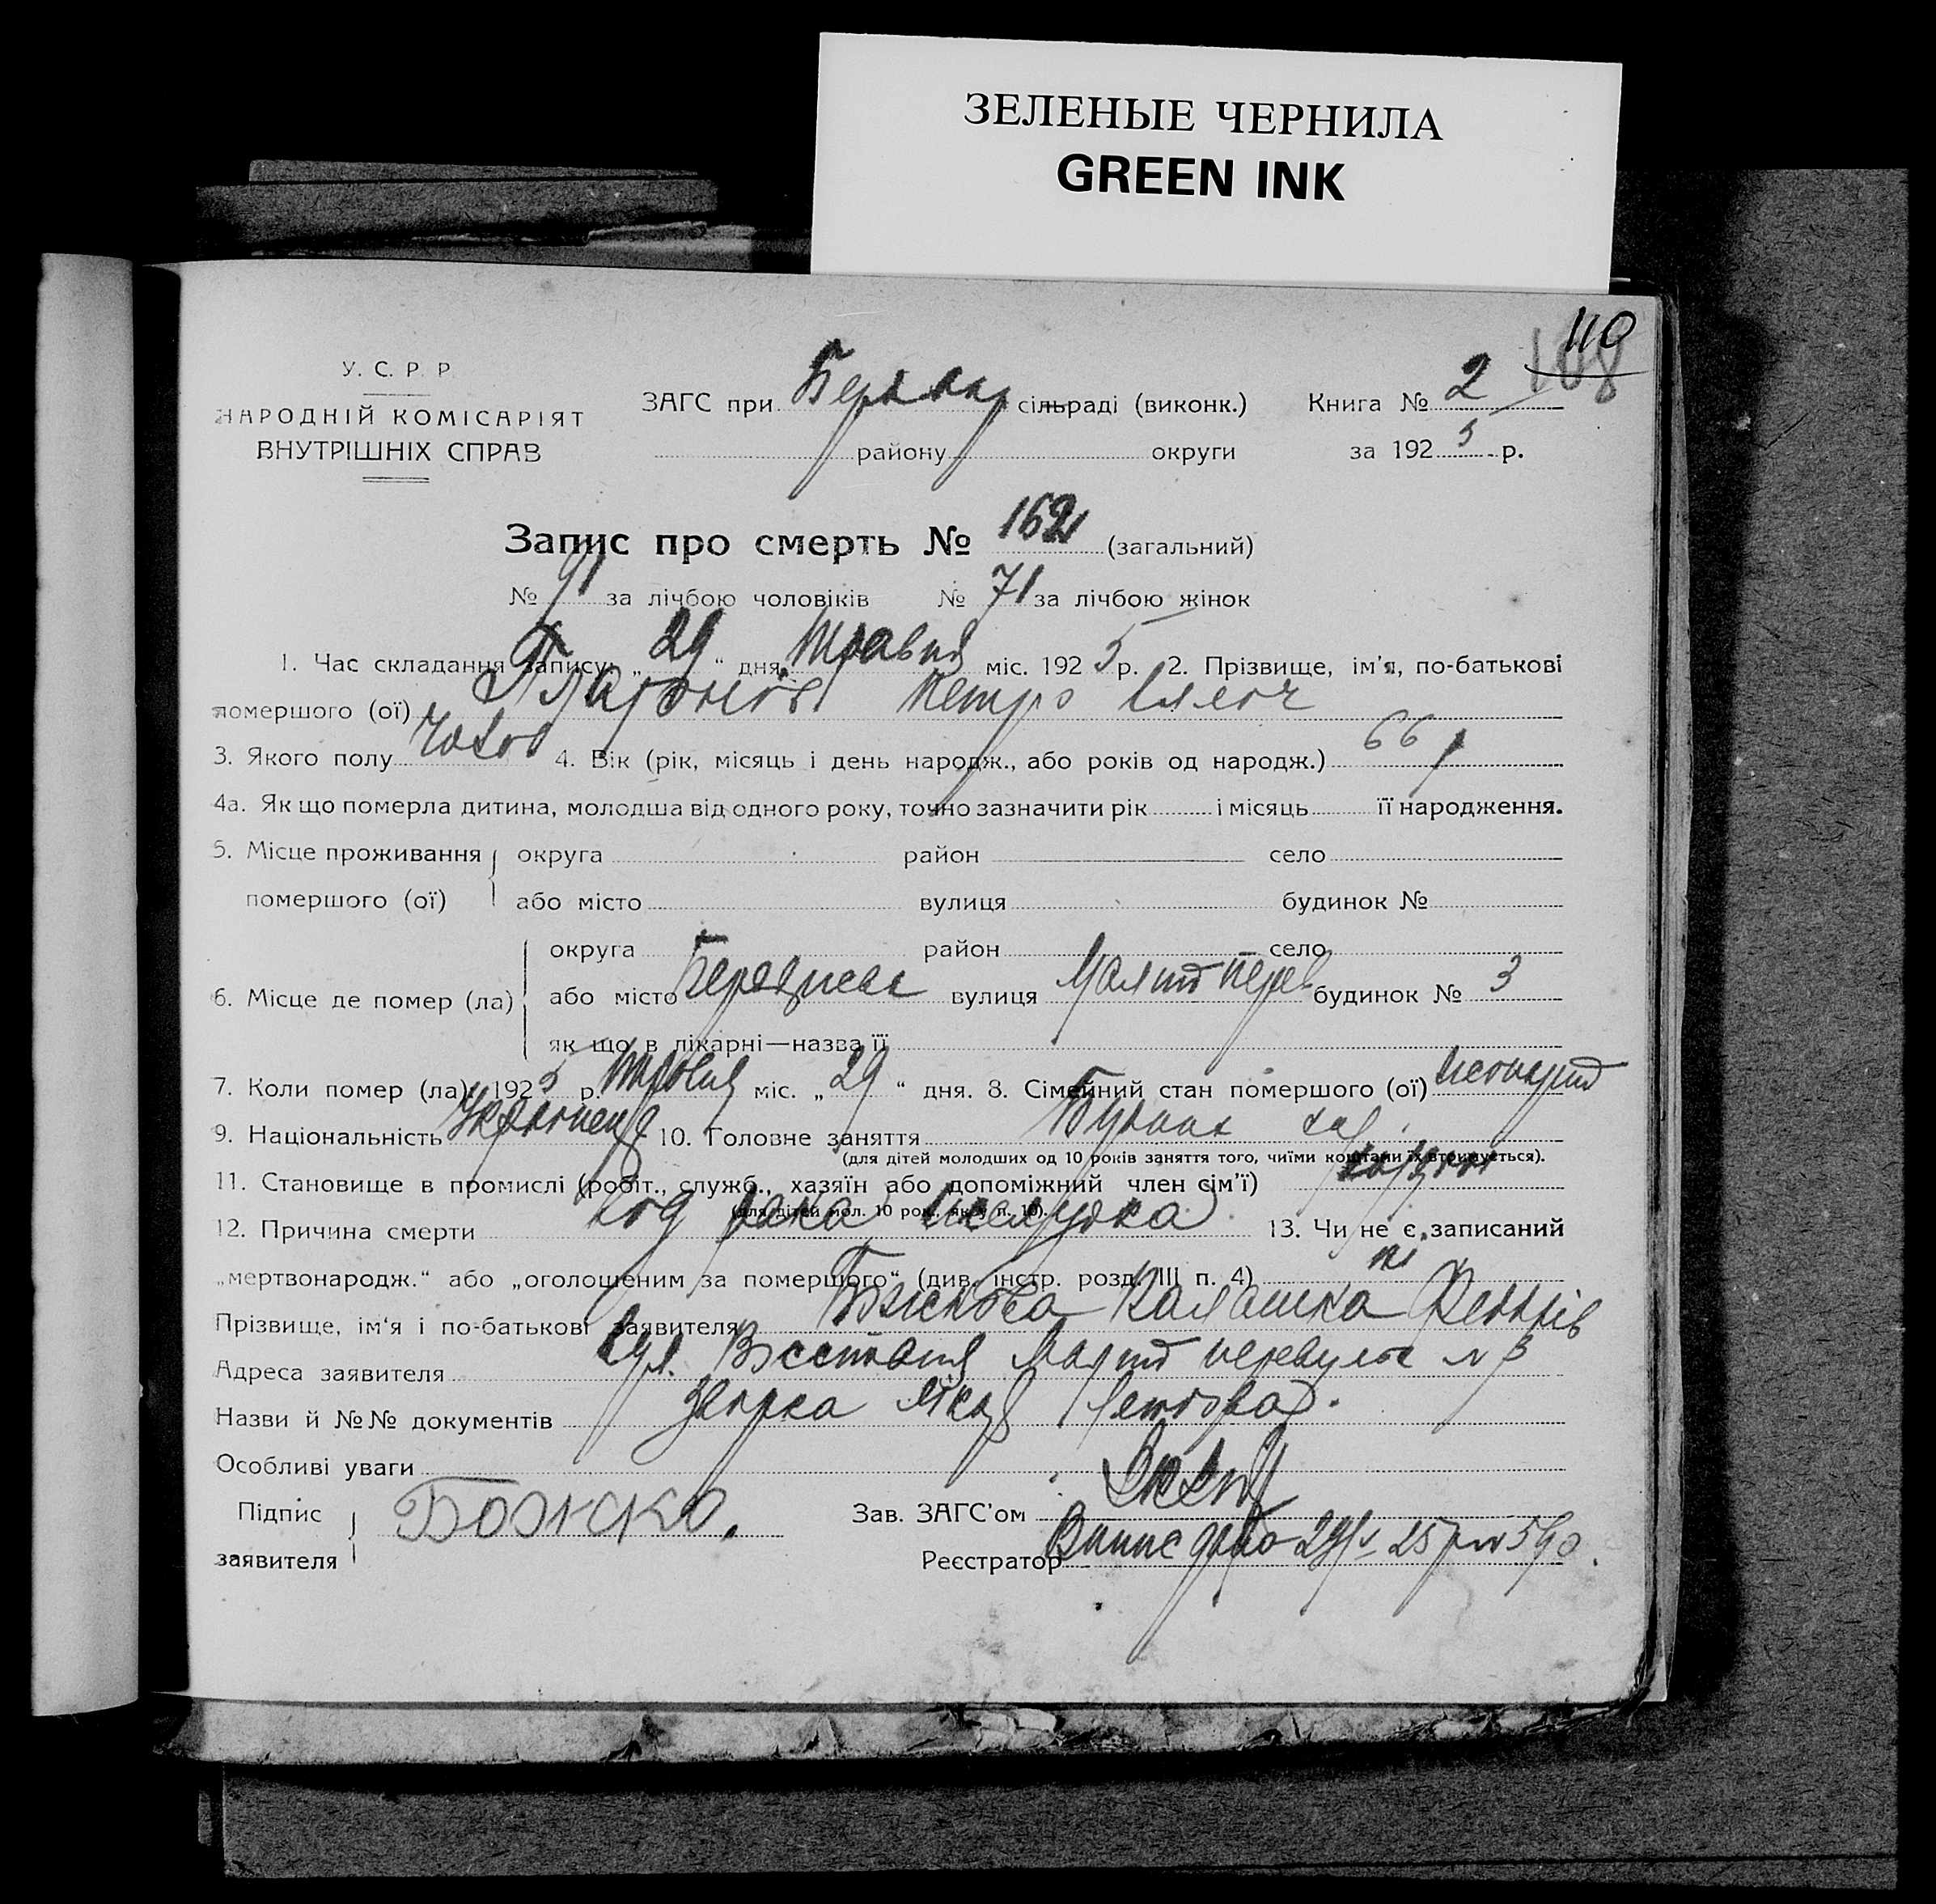 ЗЕЛЕНЫЕ ЧЕРНИЛА
GREEN INK
110
108
У. С. Р. Р
НАРОДНІЙ КОМІСАРІЯТ
ВНУТРІШНІХ СПРАВ
ЗАГС при сільраді (виконк.)
району округи
Книга № 2
за 1925 р.
Запис про смерть № 162 (загальний)
№ 91 за лічбою чоловіків № 71 за лічбою жінок
1. Час складання запису: „29“ дня Травня міс. 1925 р. 2. Прізвище, ім'я, по-батькові
помершого (ої) Петро
3. Якого полу Чолов 4. Вік (рік, місяць і день народж., або років од народж.) 66 р
4а. Як що померла дитина, молодша від одного року, точно зазначити рік і місяць її народження.
5. Місце проживання округа район село
помершого (ої) або місто вулиця будинок №
округа район село
6. Місце де помер (ла) або місто вулиця Малий перев будинок № 3
як що в лікарні—назва її
7. Коли помер (ла): 1925 р. Травня міс. „29“ дня. 8. Сімейний стан помершого (ої)
9. Національність Українець 10. Головне заняття
(для дітей молодших од 10 років заняття того, чиїми коштами їх втримується).
11. Становище в промислі (робіт., служб., хазяїн або допоміжний член сім'ї)
(для дітей мол. 10 рок., як у п. 10).
12. Причина смерти од рака желудка 13. Чи не є записаний
„мертвонародж.“ або „оголошеним за помершого“ (див. інстр. розд. III п. 4) ні
Прізвище, ім'я і по-батькові заявителя
Адреса заявителя вул. Малий перевулок № 3
Назви й №№ документів
Особливі уваги
Підпис
заявителя Божко.
Зав. ЗАГС'ом
Реєстратор